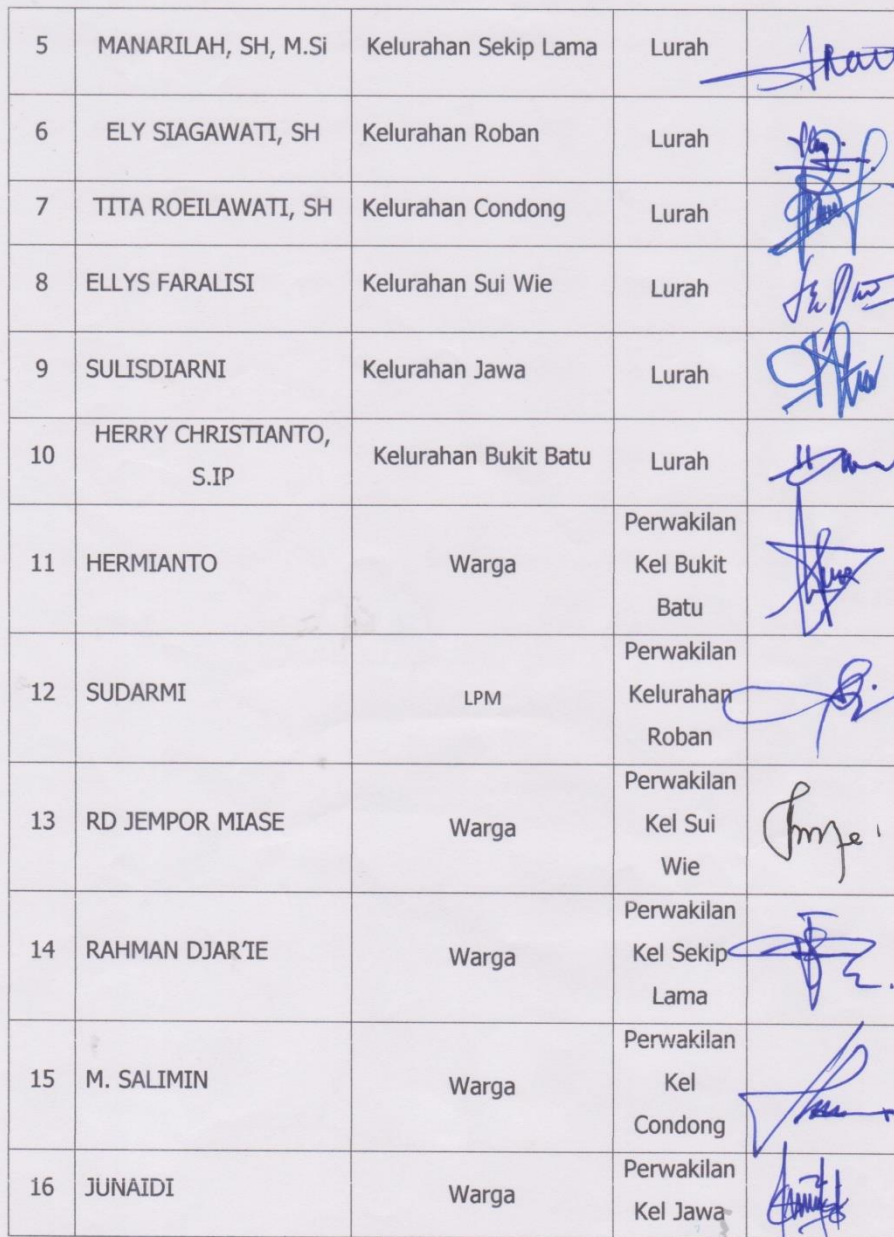 5 MANARILAH, SH, M.Si Kelurahan Sekip Lama Lurah
6 ELY SIAGAWATI, SH Kelurahan Roban Lurah
7 TITA ROEILAWATI, SH Kelurahan Condong Lurah
8 ELLYS FARALISI Kelurahan Sui Wie Lurah
9 SULISDIARNI Kelurahan Jawa Lurah
10 HERRY CHRISTIANTO, Kelurahan Bukit Batu Lurah
S.IP
11 HERMIANTO Warga Perwakilan
Kel Bukit
Batu
12 SUDARMI LPM Perwakilan
Kelurahan
Roban
13 RD JEMPOR MIASE Warga Perwakilan
Kel Sui
Wie
14 RAHMAN DJAR'IE Warga Perwakilan
Kel Sekip
Lama
15 M. SALIMIN Warga Perwakilan
Kel
Condong
16 JUNAIDI Warga Perwakilan
Kel Jawa